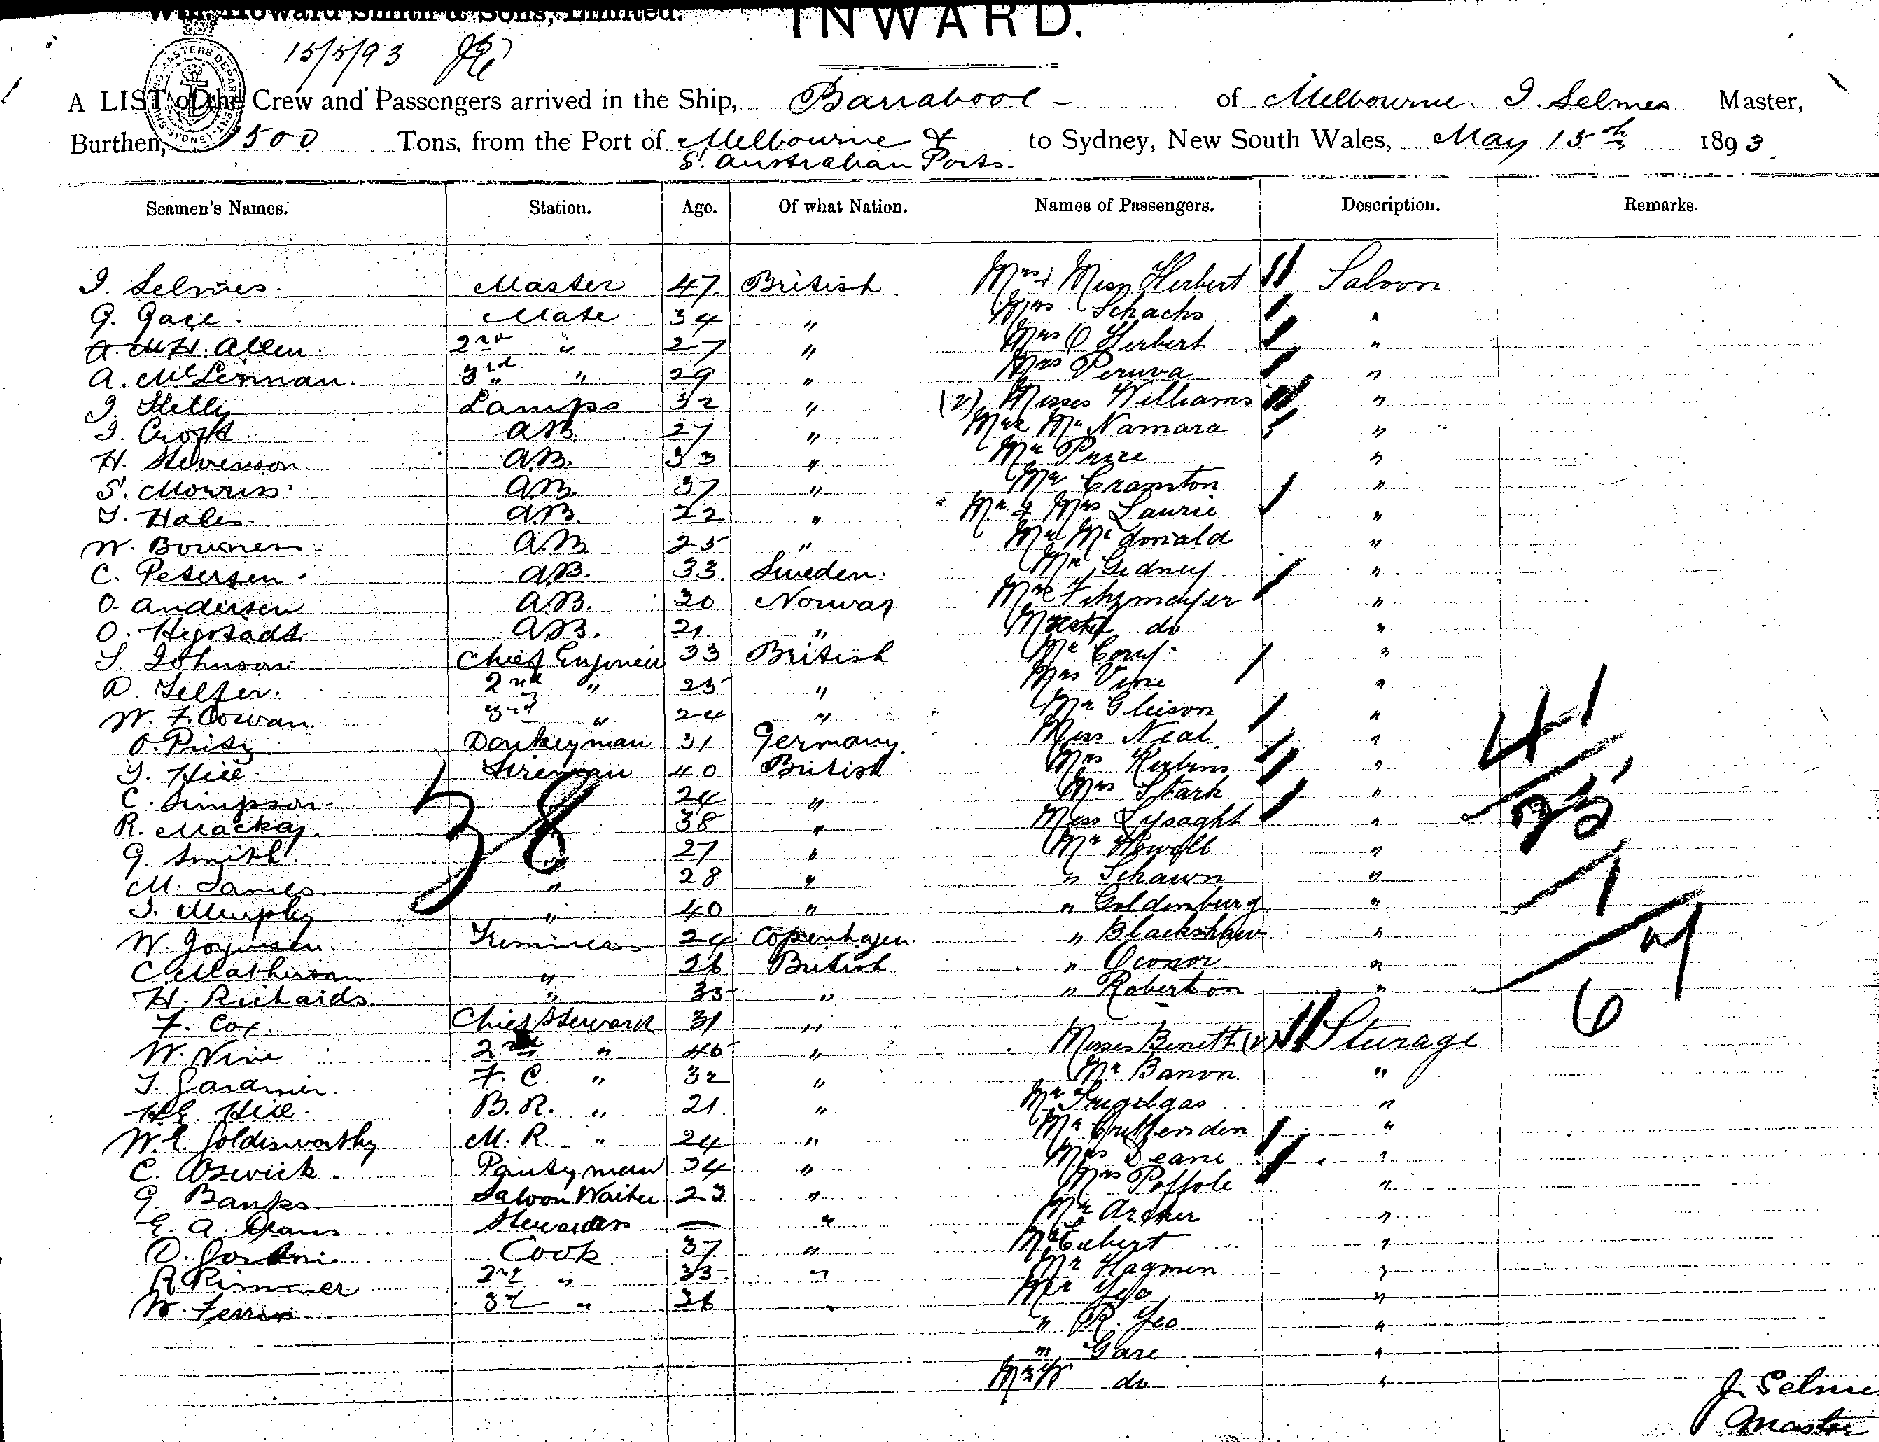 Wm. Howard Smith & Sons, Limited.
INWARD.
15/5/93
A LIST of the Crew and Passengers arrived in the Ship, Barrabool of Melbourne I. Selmes Master,
Burthen, 500 Tons, from the Port of Melbourne & to Sydney, New South Wales, May 15th 1893
S. Australian Ports
Seamen's Names. Station. Age. Of what Nation. Names of Passengers. Description. Remarks.
I. Selmes Master 47 British Mrs & Miss Herbert Saloon
G. Mate 34 " Mrs Schachs "
Allen 2nd " 27 " Mrs O Herbert "
A. McLennan 3rd " 29 " Mrs Peruva "
Lamps 32 " (2) Misses Williams "
I. Croft AB 27 " McNamara "
H. Stevenson AB. 33 " Mr "
S. Morris AB 37 " Mr Cramton "
T. Hales AB. 22 " Mr & Mrs Laurie "
W. AB 25 " Mr McDonald "
C. Petersen AB. 33 Sweden Mr Gidney "
O. Andersen AB. 20 Norway Fitzmayer "
O. AB. 21 " do "
S. Johnson Chief Engineer 33 British Mr "
D. Telfer 2nd " 25 " Mrs Vine "
W. F. Cowan 3rd " 24 " Mr Gleison "
O. Donkeyman 31 Germany Miss Neal "
T. Hill Fireman 40 British Mrs "
C. Simpson 24 " Mrs Stark "
R. Mackay 38 " Miss Lysaght "
G. Smith " 27 " Mr Howell "
M. James " 28 " " Schawn "
T. Murphy " 40 " " Goldenburg "
W. Trimmers 24 Copenhagen " Blackshaw "
C. Mathieson " 26 British " "
H. Richards " 35 " " Robertson "
F. Cox Chief Steward 31 "
Misses Benett (2) Sturage
W. Vine 2nd " 46 "
Mr Banon "
T. Gardner F. C. " 32 "
H.E. Hill B.R. " 21 " Mr "
W. E. Goldsworthy M. R. " 24 " Mr Cruttenden "
C. Pantryman 34 " Mrs Deane "
G. Banks Saloon Waiter 23 " Mrs Poffole "
E. A. Stewardess — " Mr Archer "
D. Cook 37 " Mr "
R Rimmer 2nd " 33 " Mr Hagmen "
W. Ferrin 3rd " 26 Mr Yeo "
" R. Yeo "
" Gare "
do "
38
41
25
1
6
J. Selmes
Master